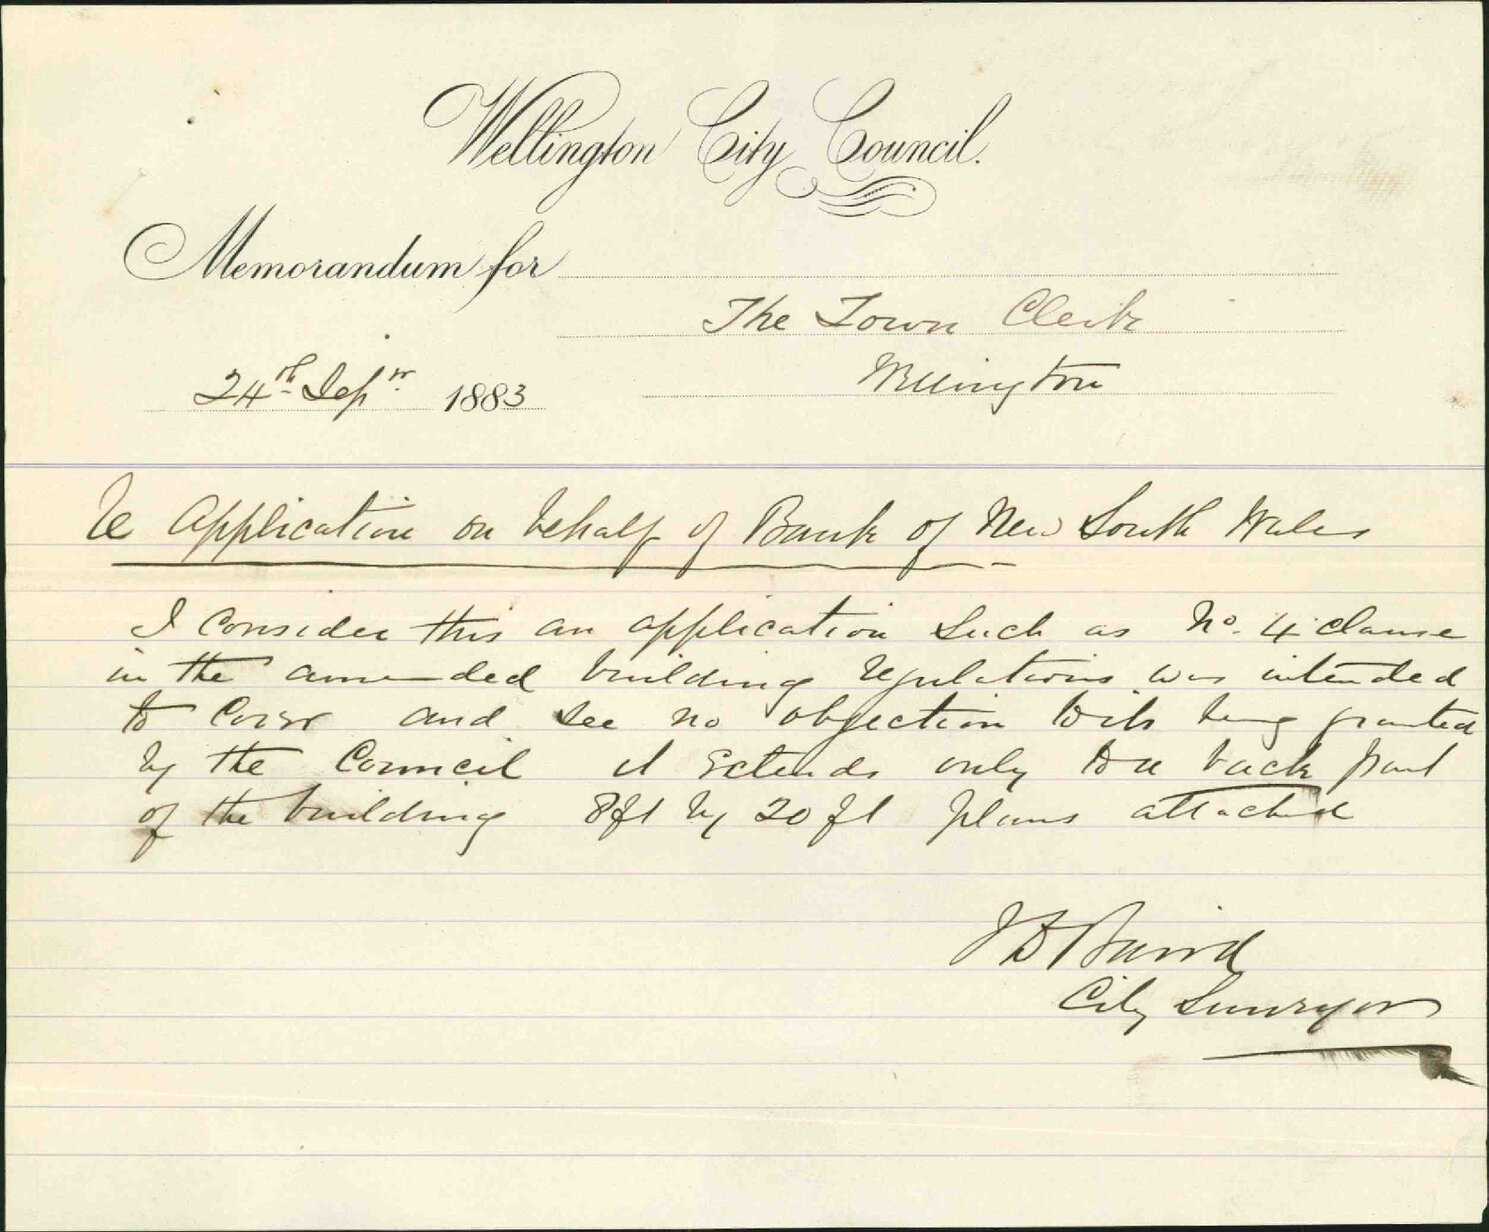 Wellington City Council.
Memorandum for
The Town Clerk
Wellington
24th Sepr. 1883
Re Application on behalf of Bank of New South Wales
I consider this an application such as No. 4 clause
in the amended building regulations was intended
to cover and see no objection to its being granted
by the Council it extends only to a back part
of the building 8ft by 20ft plans attached
J D Baird
City Surveyor